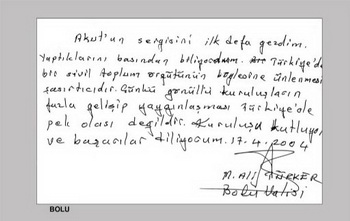 Akut'un sergisini ilk defa gezdim.
Yaptıklarını basından biliyordum. Türkiye'de
bir sivil toplum örgütünün böylesine ünlenmesi
şaşırtıcıdır. Çünkü gönüllü kuruluşların
fazla gelişip yaygınlaşması Türkiye'de
pek olası değildir. Kuruluşu kutluyor
ve başarılar diliyorum. 17.4.2004
M. Ali TÜRKER
Bolu Valisi
BOLU